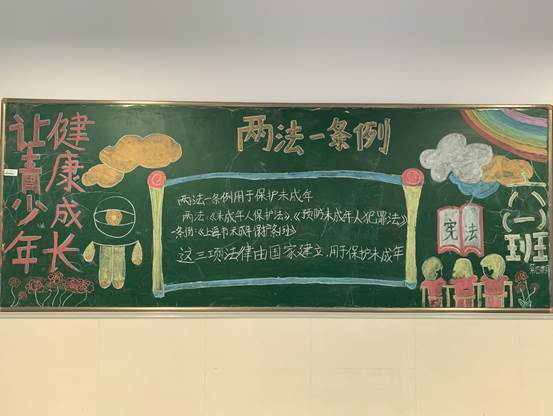 让青少年
健康成长
两法一条例
两法一条例用于保护未成年
两法:《未成年人保护法》、《预防未成年人犯罪法》
一条例:《上海市未成年保护条例》
这三项法律由国家建立,用于保护未成年
宪法
八(一)班